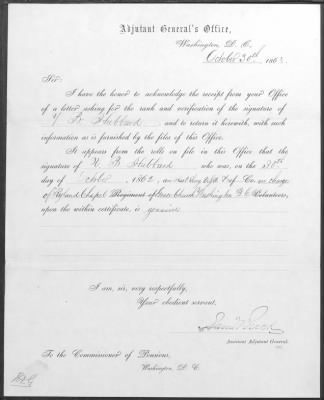 Adjutant General's Office,
Washington, D. C.
October 30th 1863.
Sir:
I have the honor to acknowledge the receipt from your Office
of a letter asking for the rank and verification of the signature of
Hubbard and to return it herewith, with such
information as is furnished by the files of this Office.
It appears from the rolls on file in this Office that the
signature of B Hubbard who was, on the 30th
day of October, 1862, an in charge
of Ryland Chapel Regiment of Washington D.C. Volunteers,
upon the within certificate, is genuine
I am, sir, very respectfully,
Your obedient servant,
Assistant Adjutant General.
To the Commissioner of Pensions,
Washington, D. C.